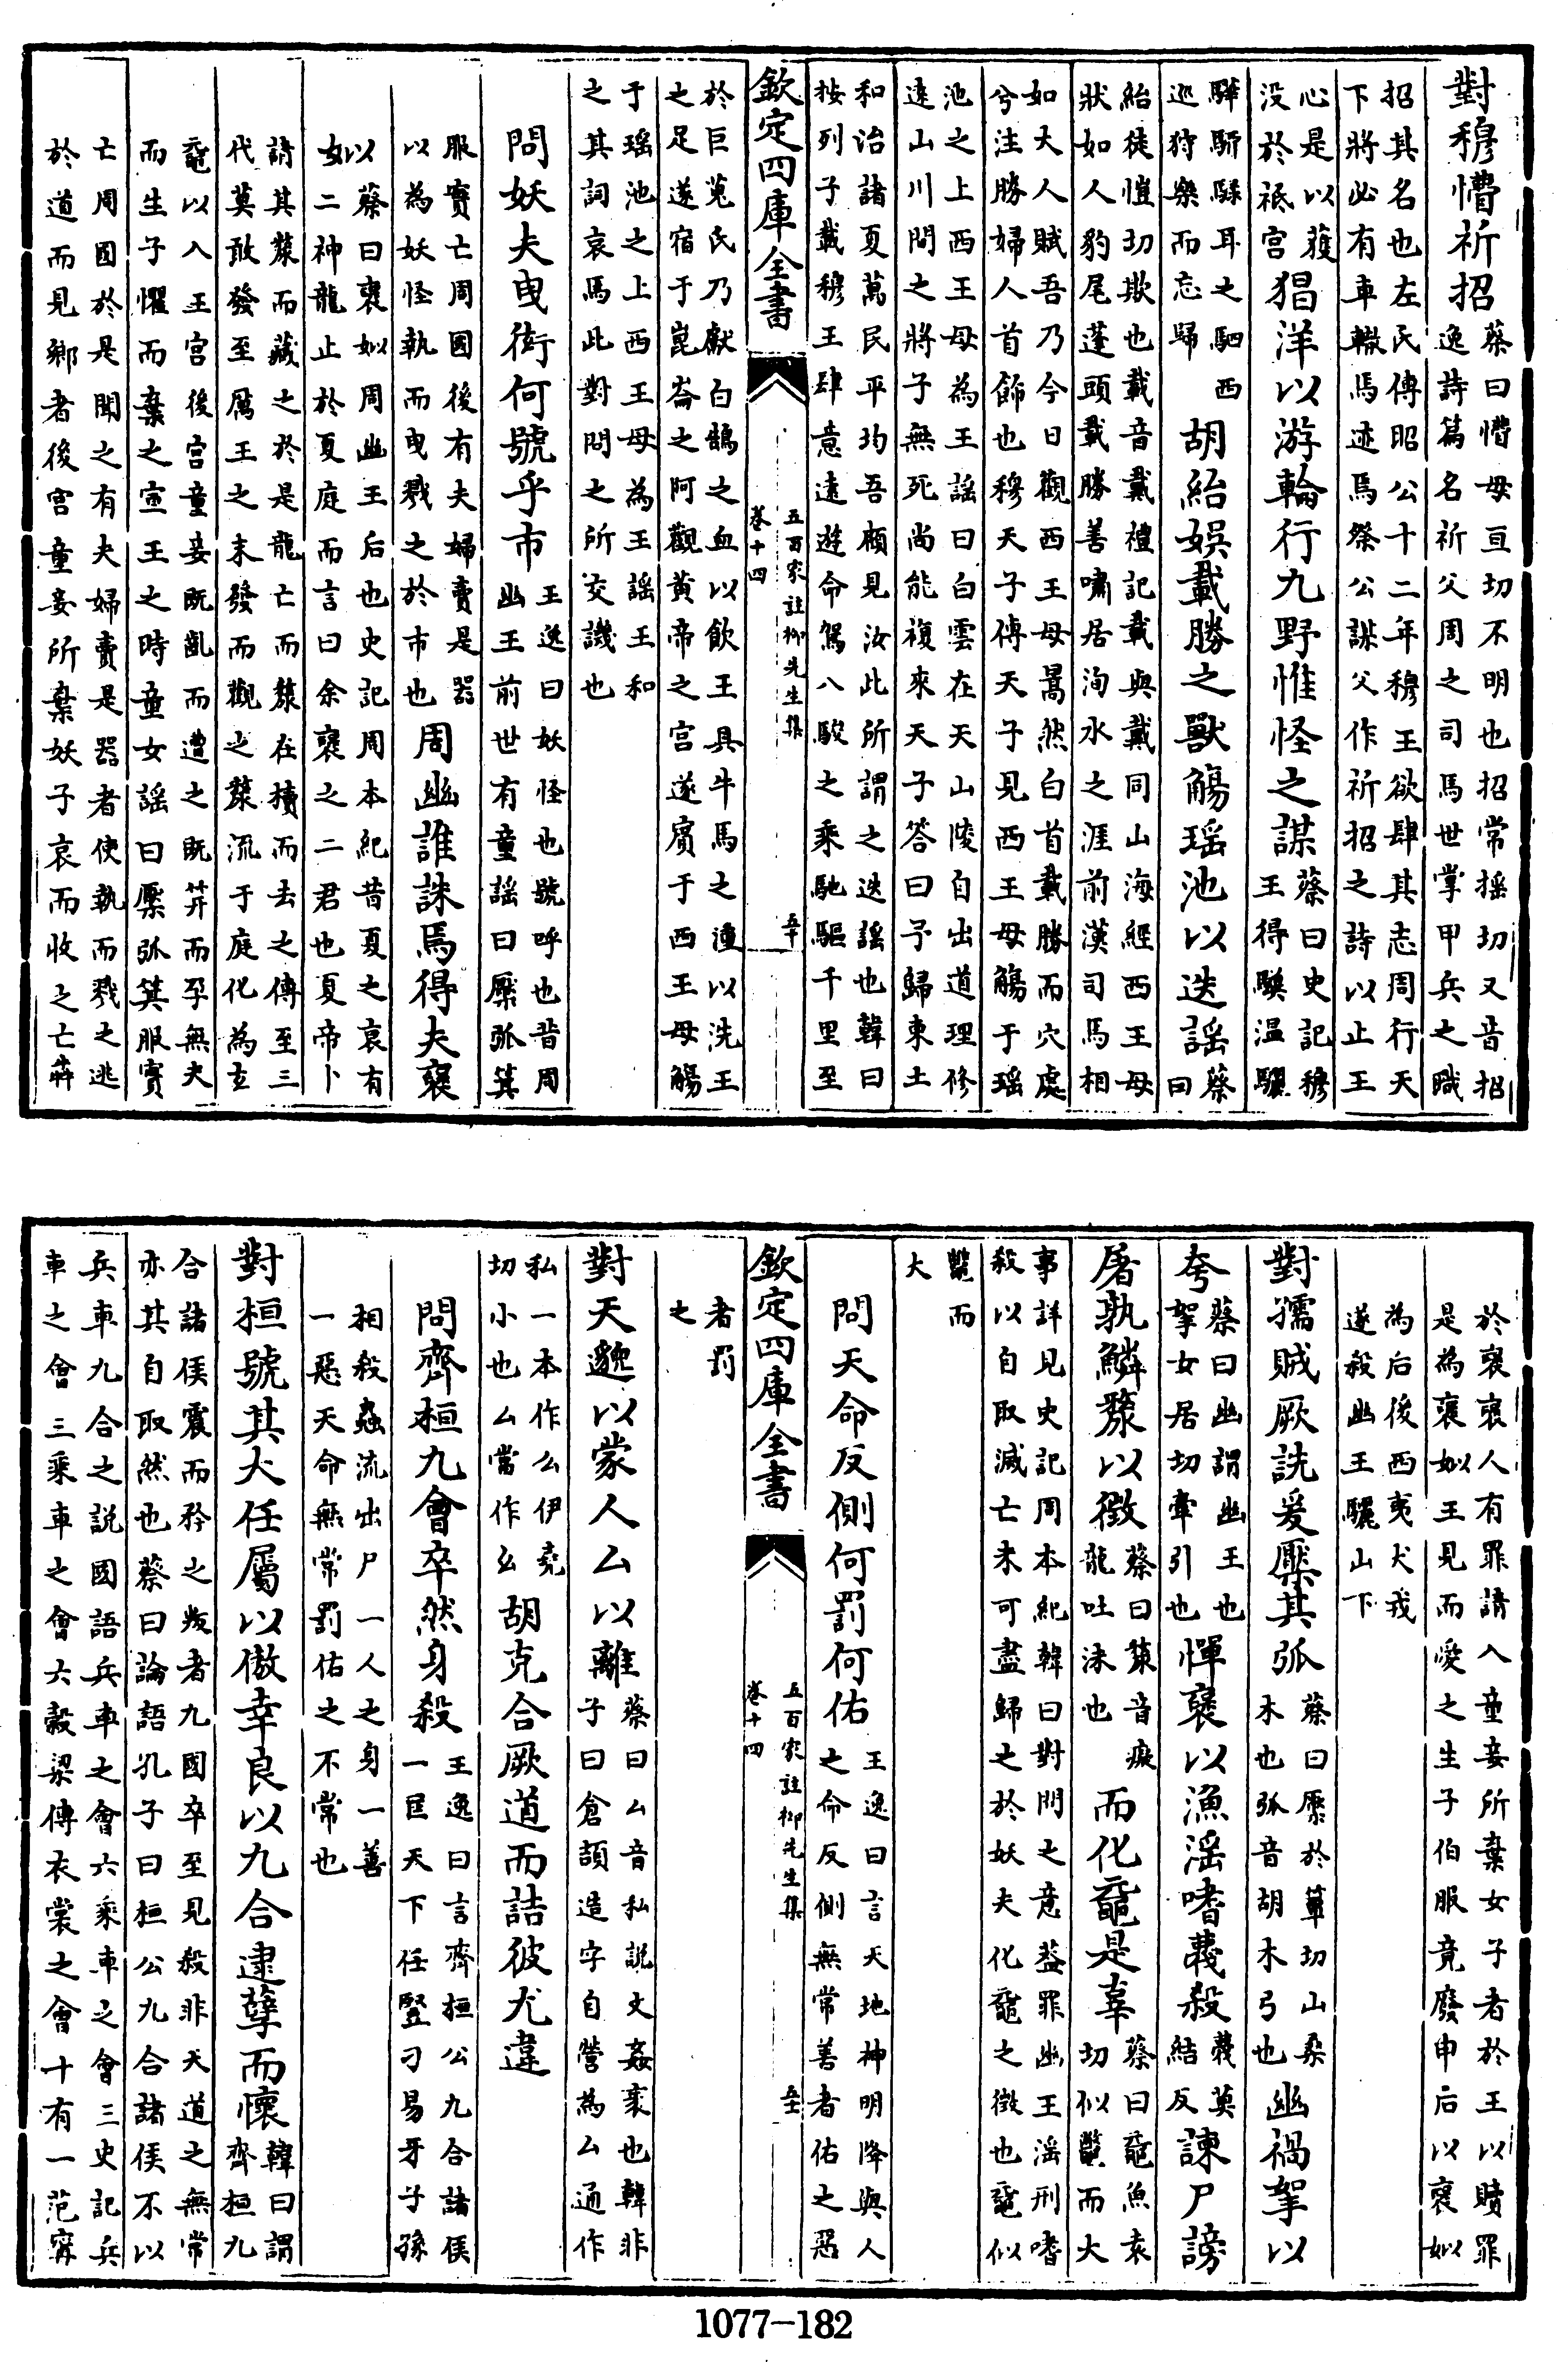 對穆懵祈招蔡曰懵母亘切不明也招常摇切又音招
逸詩篇名祈父周之司馬世掌甲兵之職
招其名也左氏傳昭公十二年穆王欲肆其志周行天
下將必有車轍馬迹焉祭公謀父作祈招之詩以止王
心是以獲
没於祗宫猖洋以游輪行九野惟怪之謀蔡曰史記穆
王得驥温驪
驊騮騄耳之駟西
巡狩樂而忘歸胡紿娯載勝之獸觴瑶池以迭謡蔡
曰
紿徒愷切欺也載音戴禮記載與戴同山海經西王母
狀如人豹尾蓬頭載勝善嘯居洵水之涯前漢司馬相
如大人賦吾乃今日觀西王母暠然白首載勝而穴處
兮注勝婦人首飾也穆天子傳天子見西王母觴于瑶
池之上西王母為王謡曰白雲在天山陵自出道理修
遠山川間之將子無死尚能複來天子答曰予歸東土
和治諸夏萬民平均吾顧見汝此所謂之迭謡也韓曰
按列子載穆王肆意遠遊命駕八駿之乘馳驅千里至
欽定四庫全書
五百家註柳先生集
卷十四
五十
於巨蒐氏乃獻白鵠之血以飲王具牛馬之湩以洗王
之足遂宿于崑崙之阿觀黄帝之宫遂賓于西王母觴
于瑶池之上西王母為王謡王和
之其詞哀焉此對問之所交譏也
問妖夫曳衒何號乎市王逸曰妖怪也號呼也昔周
幽王前世有童謡曰檿弧箕
服實亡周國後有夫婦賣是器
以為妖怪執而曳戮之於市也周幽誰誅焉得夫褒
姒蔡曰褒姒周幽王后也史記周本紀昔夏之衰有
二神龍止於夏庭而言曰余褒之二君也夏帝卜
請其漦而藏之於是龍亡而漦在櫝而去之傳至三
代莫敢發至厲王之末發而觀之漦流于庭化為玄
黿以入王宫後宫童妾既齓而遭之既笄而孕無夫
而生子懼而棄之宣王之時童女謡曰檿弧箕服實
亡周國於是聞之有夫婦賣是器者使執而戮之逃
於道而見鄉者後宫童妾所棄妖子哀而收之亡犇
於褒褒人有罪請入童妾所棄女子者於王以贖罪
是為褒姒王見而愛之生子伯服竟廢申后以褒姒
為后後西夷犬戎
遂殺幽王驪山下
對孺賊厥詵爰檿其弧蔡曰檿於葷切山桑
木也弧音胡木弓也幽禍挐以
夸蔡曰幽謂幽王也
挐女居切牽引也憚褒以漁淫嗜䕾殺䕾莫
結反諫尸謗
屠孰鱗漦以徴蔡曰漦音癡
龍吐沫也而化黿是辜蔡曰黿魚袁
切似鼈而大
事詳見史記周本紀韓曰對問之意葢罪幽王淫刑嗜
殺以自取滅亡未可盡歸之於妖夫化黿之徴也黿似
鼈而
大
問天命反側何罰何佑王逸曰言天地神明降與人
之命反側無常善者佑之惡
欽定四庫全書
五百家註柳先生集
卷十四
五十一
者罰
之
對天邈以蒙人厶以離蔡曰厶音私說文姦衺也韓非
子曰倉頡造字自營為厶通作
私一本作么伊堯
切小也么當作幺胡克合厥道而詰彼尤違
問齊桓九會卒然身殺王逸曰言齊桓公九合諸侯
一匡天下任豎刁易牙子孫
相殺蟲流出尸一人之身一善
一惡天命無常罰佑之不常也
對桓號其大任屬以傲幸良以九合逮孽而懷韓曰謂
齊桓九
合諸侯震而矜之叛者九國卒至見殺非天道之無常
亦其自取然也蔡曰論語孔子曰桓公九合諸侯不以
兵車九合之說國語兵車之會六乘車之會三史記兵
車之會三乘車之會六榖梁傳衣裳之會十有一范甯
1077-182